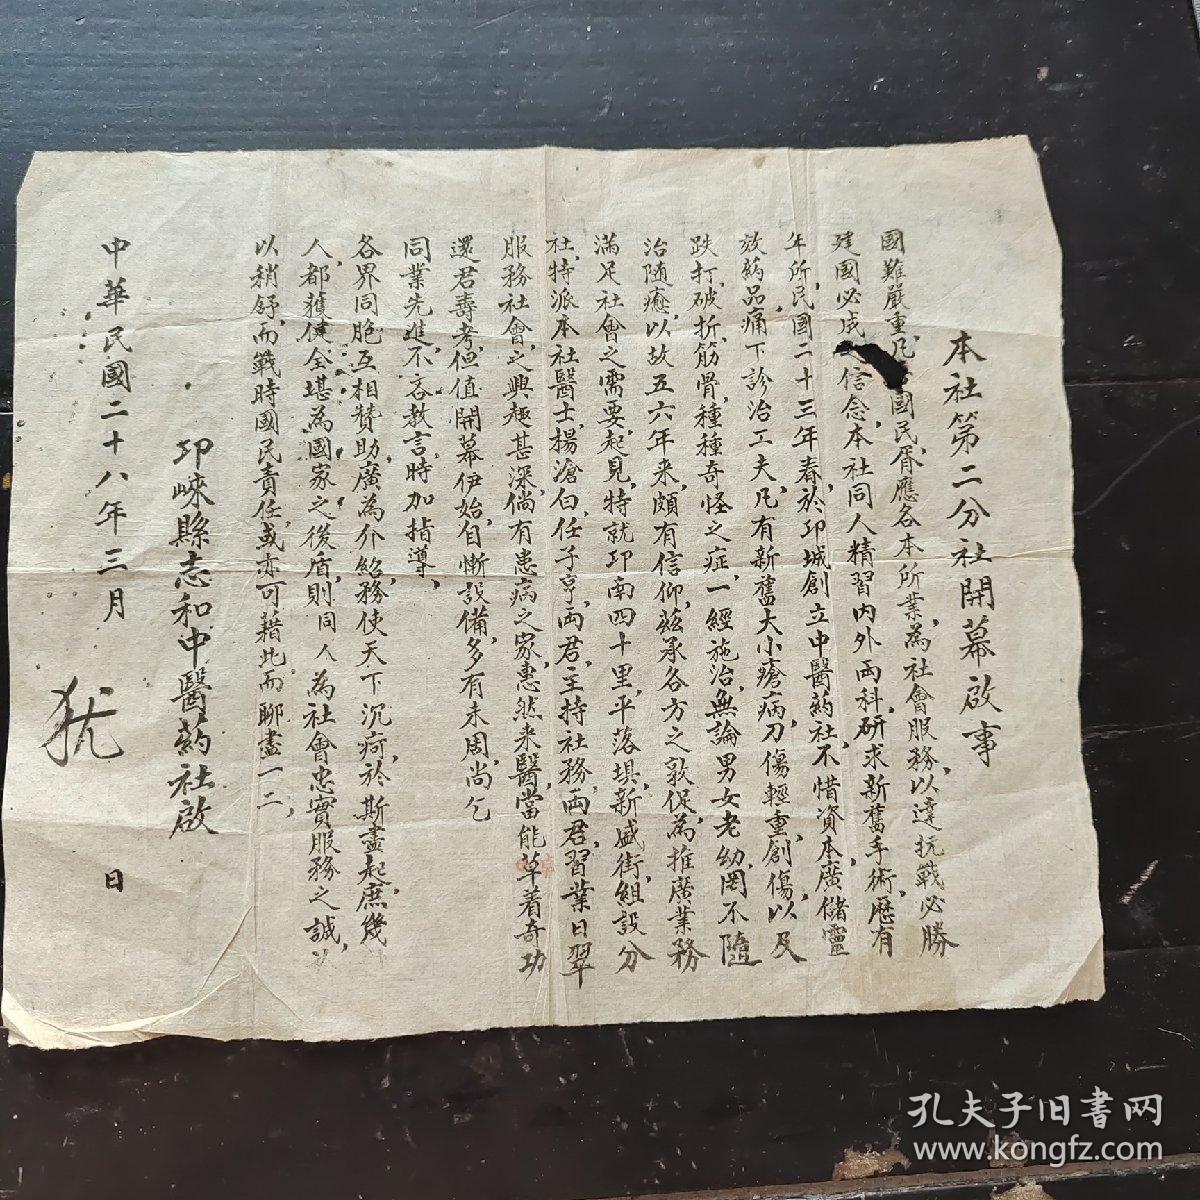 本社第二分社開幕啟事
國難嚴重,凡 國民,胥應各本所業,為社會服務,以達抗戰必勝
建國必成 信念,本社同人精習內外兩科,研求新舊手術,歷有
年所,民國二十三年春,於邛城創立中醫药社,不惜資本,廣儲靈
效药品,痛下診治工夫,凡有新舊大小瘡病,刀傷輕重創傷,以及
跌打,破折,筋骨,種種奇怪之症,一經施治,無論男女老幼,罔不隨
治随癒,以故五六年来,頗有信仰,茲承各方之敦促,為推廣業務
滿足社會之需要起見,特就邛南四十里,平落堤,新盛街,組設分
社,特派本社醫士,楊滄白,任子亨,両君,主持社務,両君習業日翠
服務社會,之興趣甚深,倘有患病之家,惠然来醫,當能草着奇功
還君壽考,但值開幕伊始,自慚設備,多有未周,尚乞
同業先進,不吝教言,時加指導,
各界同胞,互相贊助,廣為介紹,務使天下沉疴,於斯盡起,庶幾
人,都獲健全,堪為國家之後盾,則同人為社會忠實服務之誠,
以稍舒,而戰時國民責任,或亦可藉此而聊盡一二,
邛崍縣志和中醫药社啟
中華民國二十八年三月 日
犹
孔夫子旧书网
www.kongfz.com